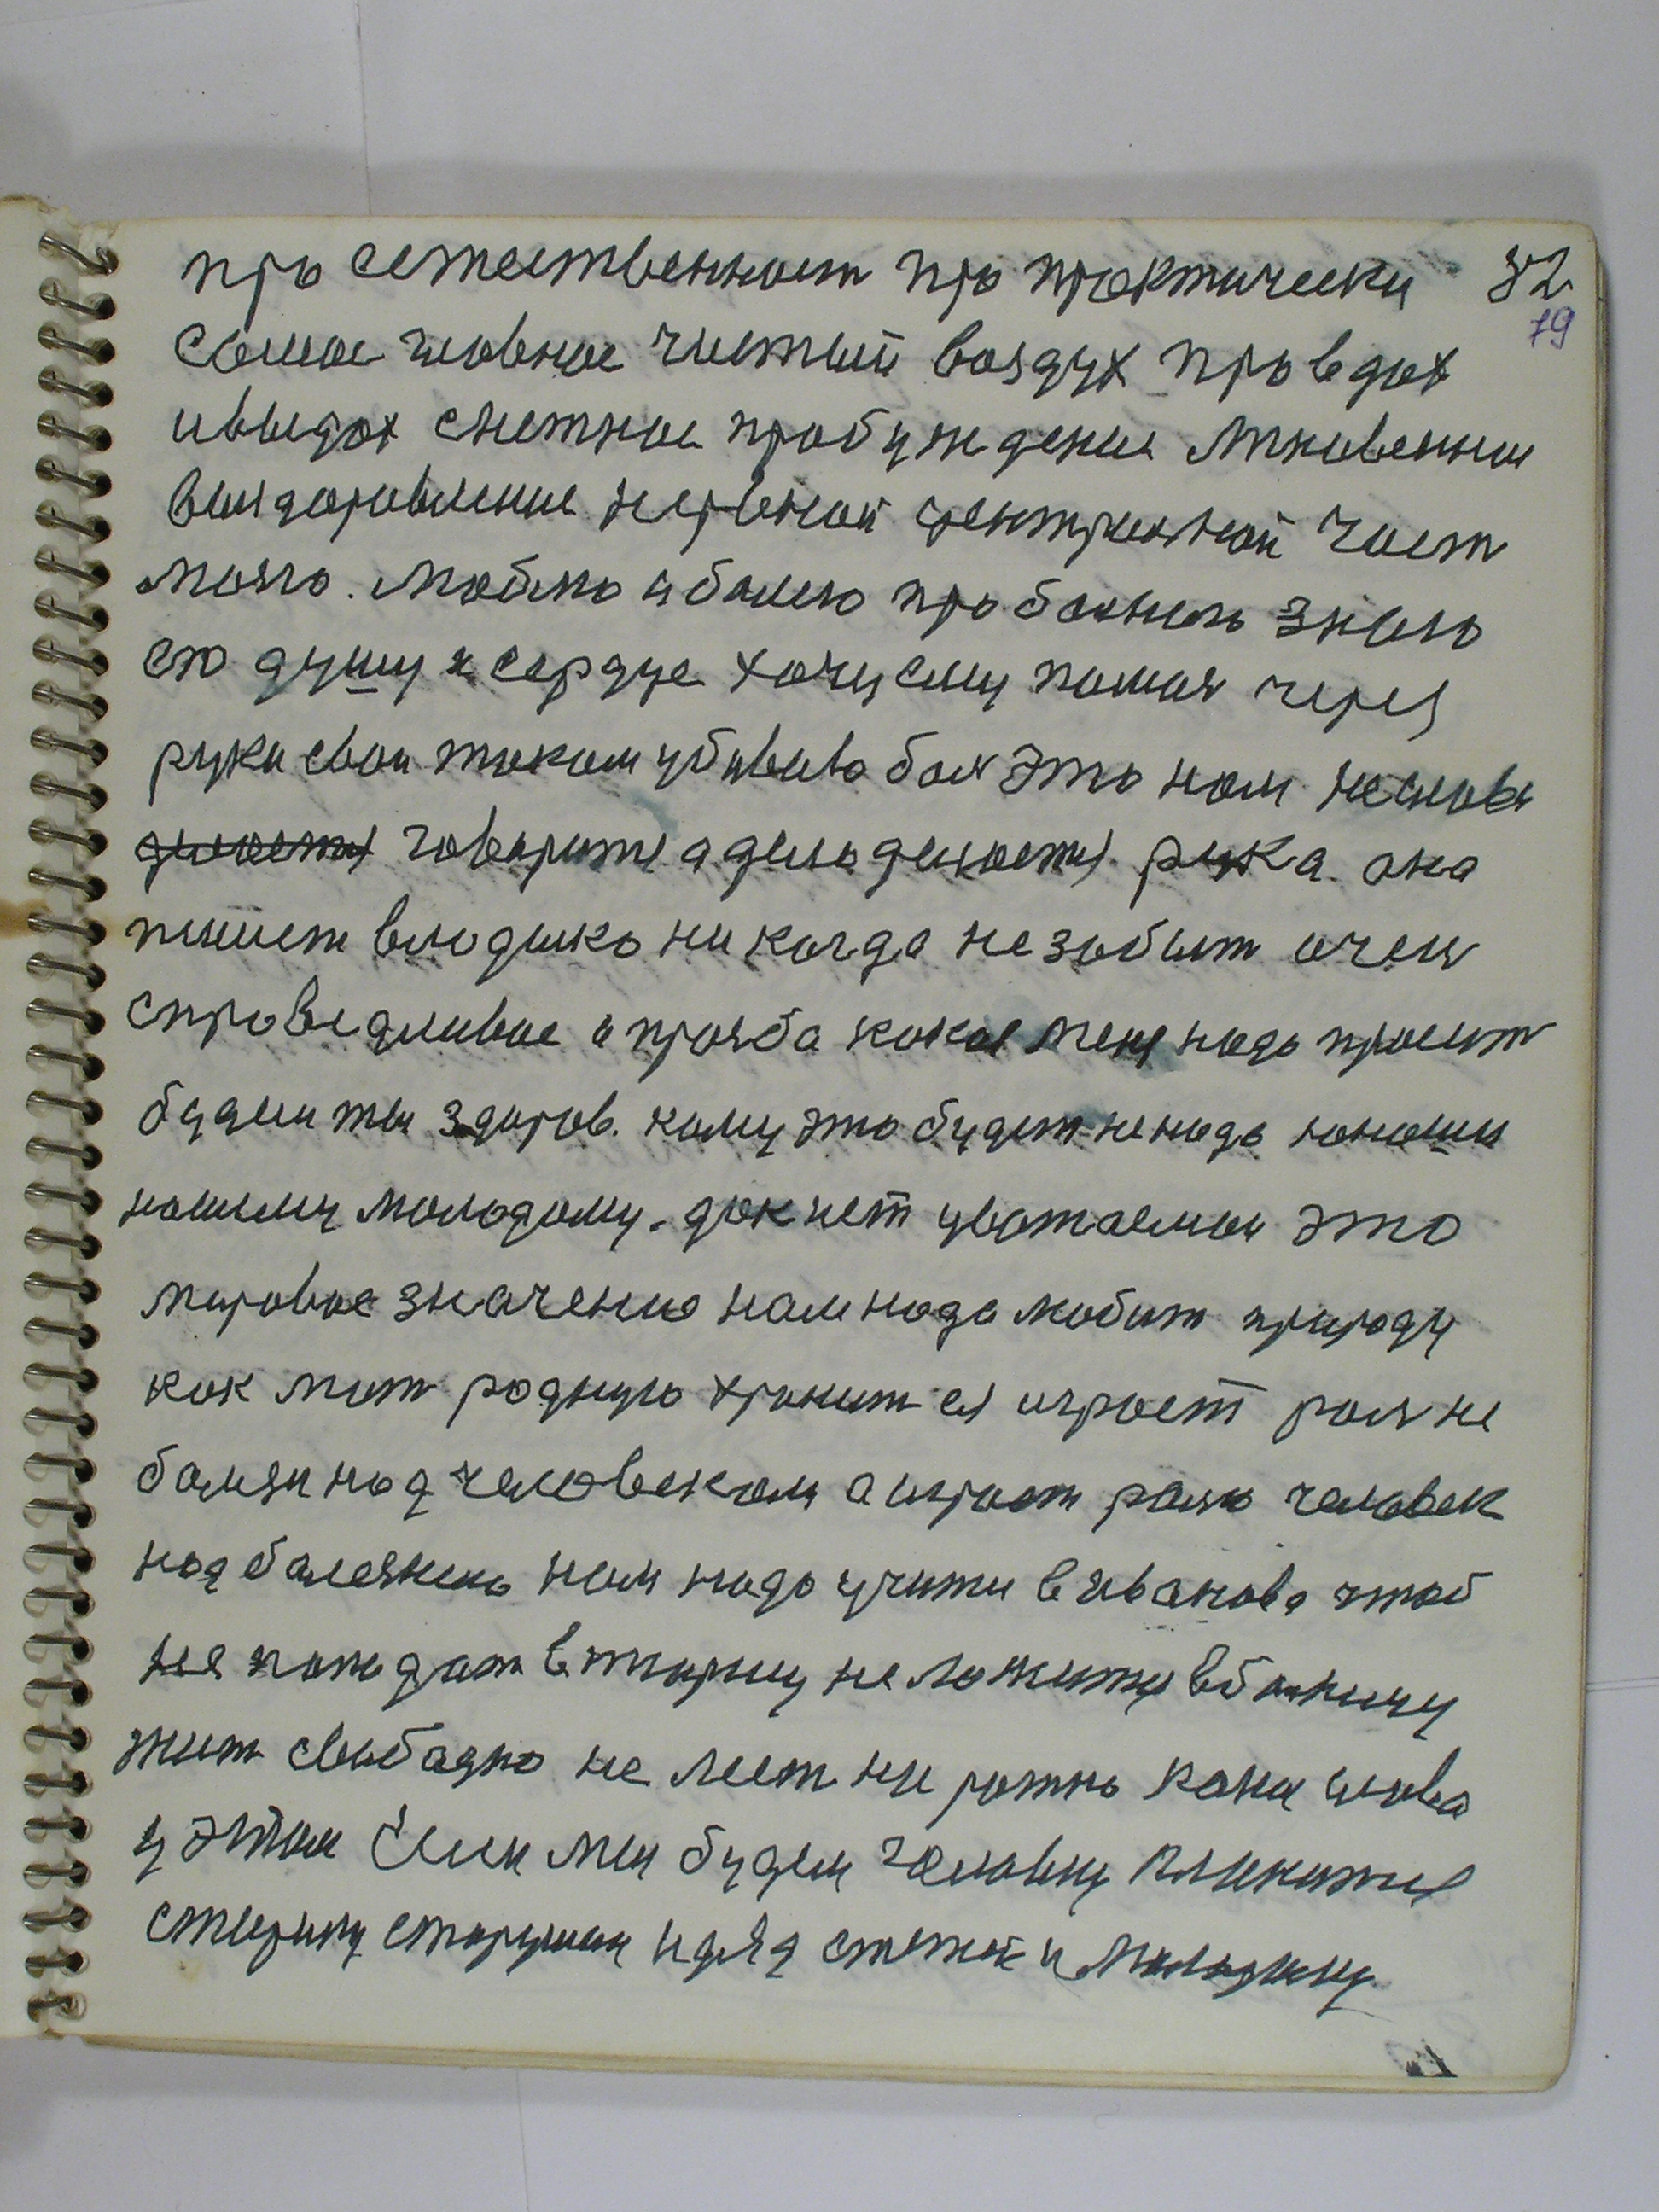 про естественност про практически 82
79
самое главное чистый воздух про вдох
ивыдох снежное пробуждение мгновение
выздоровление нервной центральной част
мозго. люблю и болею про больного знаю
его душу и сердце хочу ему помоч через
руки свои током убиваю бол это нам не слова
делоется говорится а дело делоется. рука она
пишет владыко ни когда не забыт очен
справедливое а прозба кокоя меня надо просит
будеш ты здоров. кому это будет не надо юноши
нашему молодому. док нет уважаемые это
мировое значению нам надо любит природу
как мат родную хронит ея играет рол не
болезн над человеком а играет роль человек
над болезнею нам надо учится в Иванова чтоб
не попадат в тюрму не ложится в болницу
жит свободно не лест ни рожно кака слова
у этом Если мы будем головку
старику старушки и дяд стетей и молодому